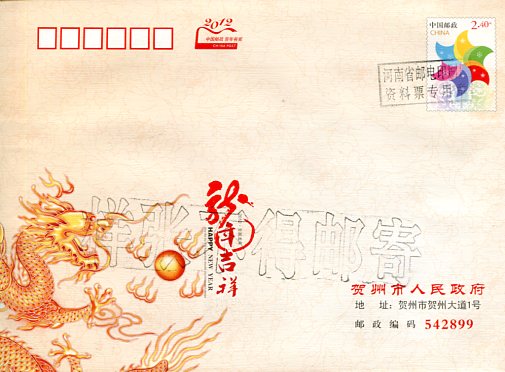 2012
中国邮政 贺年有奖
CHINA POST
中国邮政 2.40元
CHINA
河南省邮电印刷
资料票专用
样张不得邮寄
龙年吉祥
HAPPY NEW YEAR
贺州市人民政府
地 址:贺州市贺州大道1号
邮政编码 542899